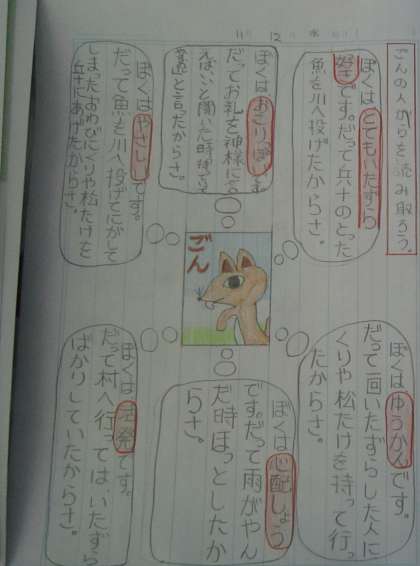 11 12 水
ごんの人がらを読み取ろう。
ぼくはとてもいたずら
好きです。だって兵十のとった
魚を川へ投げたからさ。
ぼくはおこりぼ
だってお礼を神様に
と言ったからさ。
ぼくはやさしいです。
だって魚を川へ投げてにがして
しまったおわびにくりや松たけを
兵十にあげたからさ。
ごん
ぼくはゆうかんです。
だって一回いたずらした人に
くりや松たけを持って行っ
たからさ。
ぼくは心配しょう
です。だって雨がやん
だ時ほっとしたか
らさ。
ぼくは活発です。
だって村へ行っては、いたずら
ばかりしていたからさ。